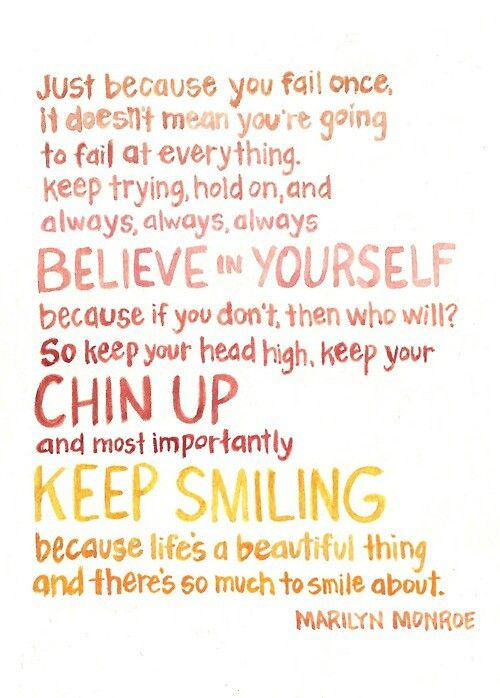 Just because you fail once,
it doesn't mean you're going
to fail at everything.
keep trying, hold on, and
always, always, always
BELIEVE IN YOURSELF
because if you don't, then who will?
So keep your head high, keep your
CHIN UP
and most importantly
KEEP SMILING
because life's a beautiful thing
and there's so much to smile about.
MARILYN MONROE